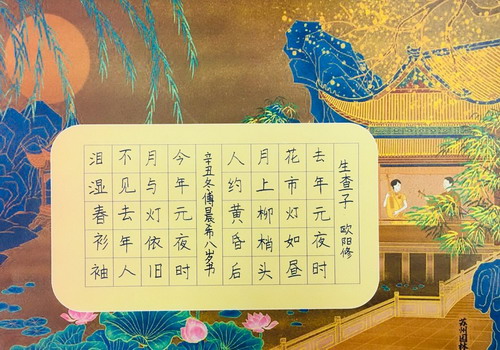 生查子 欧阳修
去年元夜时
花市灯如昼
月上柳梢头
人约黄昏后
辛丑冬傅晨希八岁书
今年元夜时
月与灯依旧
不见去年人
泪湿春衫袖
苏州园林